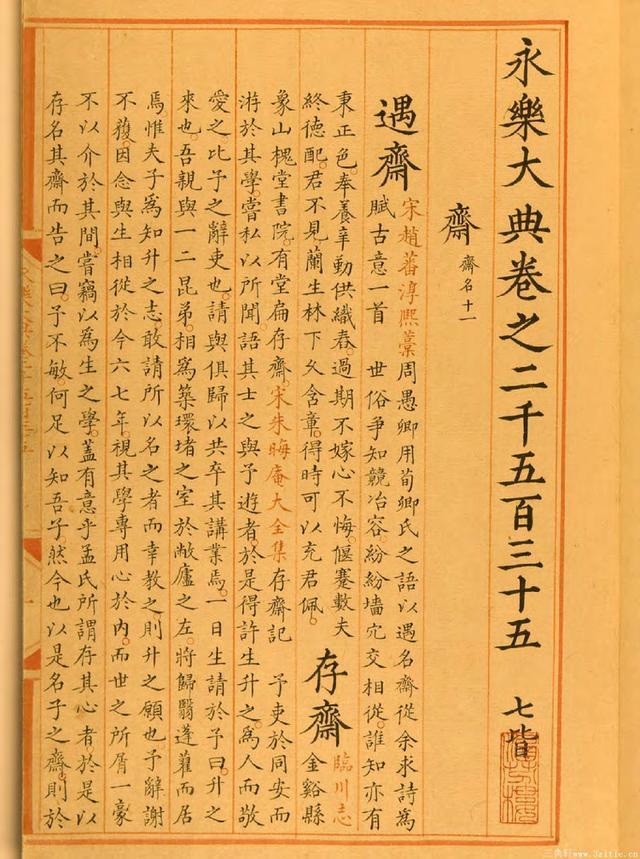 永樂大典卷之二千五百三十五 七皆
齋 齋名十一
遇齋 宋趙蕃淳熙藁周愚卿用荀卿氏之語以遇名齋從余求詩為
賦古意一首 世俗爭知競冶容。紛紛墻宂交相從。誰知亦有
秉正色。奉養辛勤供織舂。過期不嫁心不悔。偃蹇數夫
終德配。君不見蘭生林下久含章。得時可以充君佩。 存齋 臨川志
金谿縣
象山槐堂書院。有堂扁存齋。宋朱晦庵大全集存齋記 予吏於同安而
游於其學。嘗私以所聞語其士之與予遊者。於是得許生升之。為人而敬
愛之比予之辭吏也。請與俱歸以共卒其講業焉。一日生請於予曰。升之
來也。吾親與一二昆弟。相為築環堵之室於敝廬之左。將歸翳蓬藋而居
焉。惟夫子為知升之志。敢請所以名之者而幸教之則升之願也予辭謝
不獲。因念與生相從於今六七年。視其學專用心於內。而世之所屑一豪
不以介於其間。嘗竊以為生之學。蓋有意乎孟氏所謂存其心者。於是以
存名其齋而告之曰。予不敏。何足以知吾子然今也以是名子之齋。則於
www.3zitie.cn